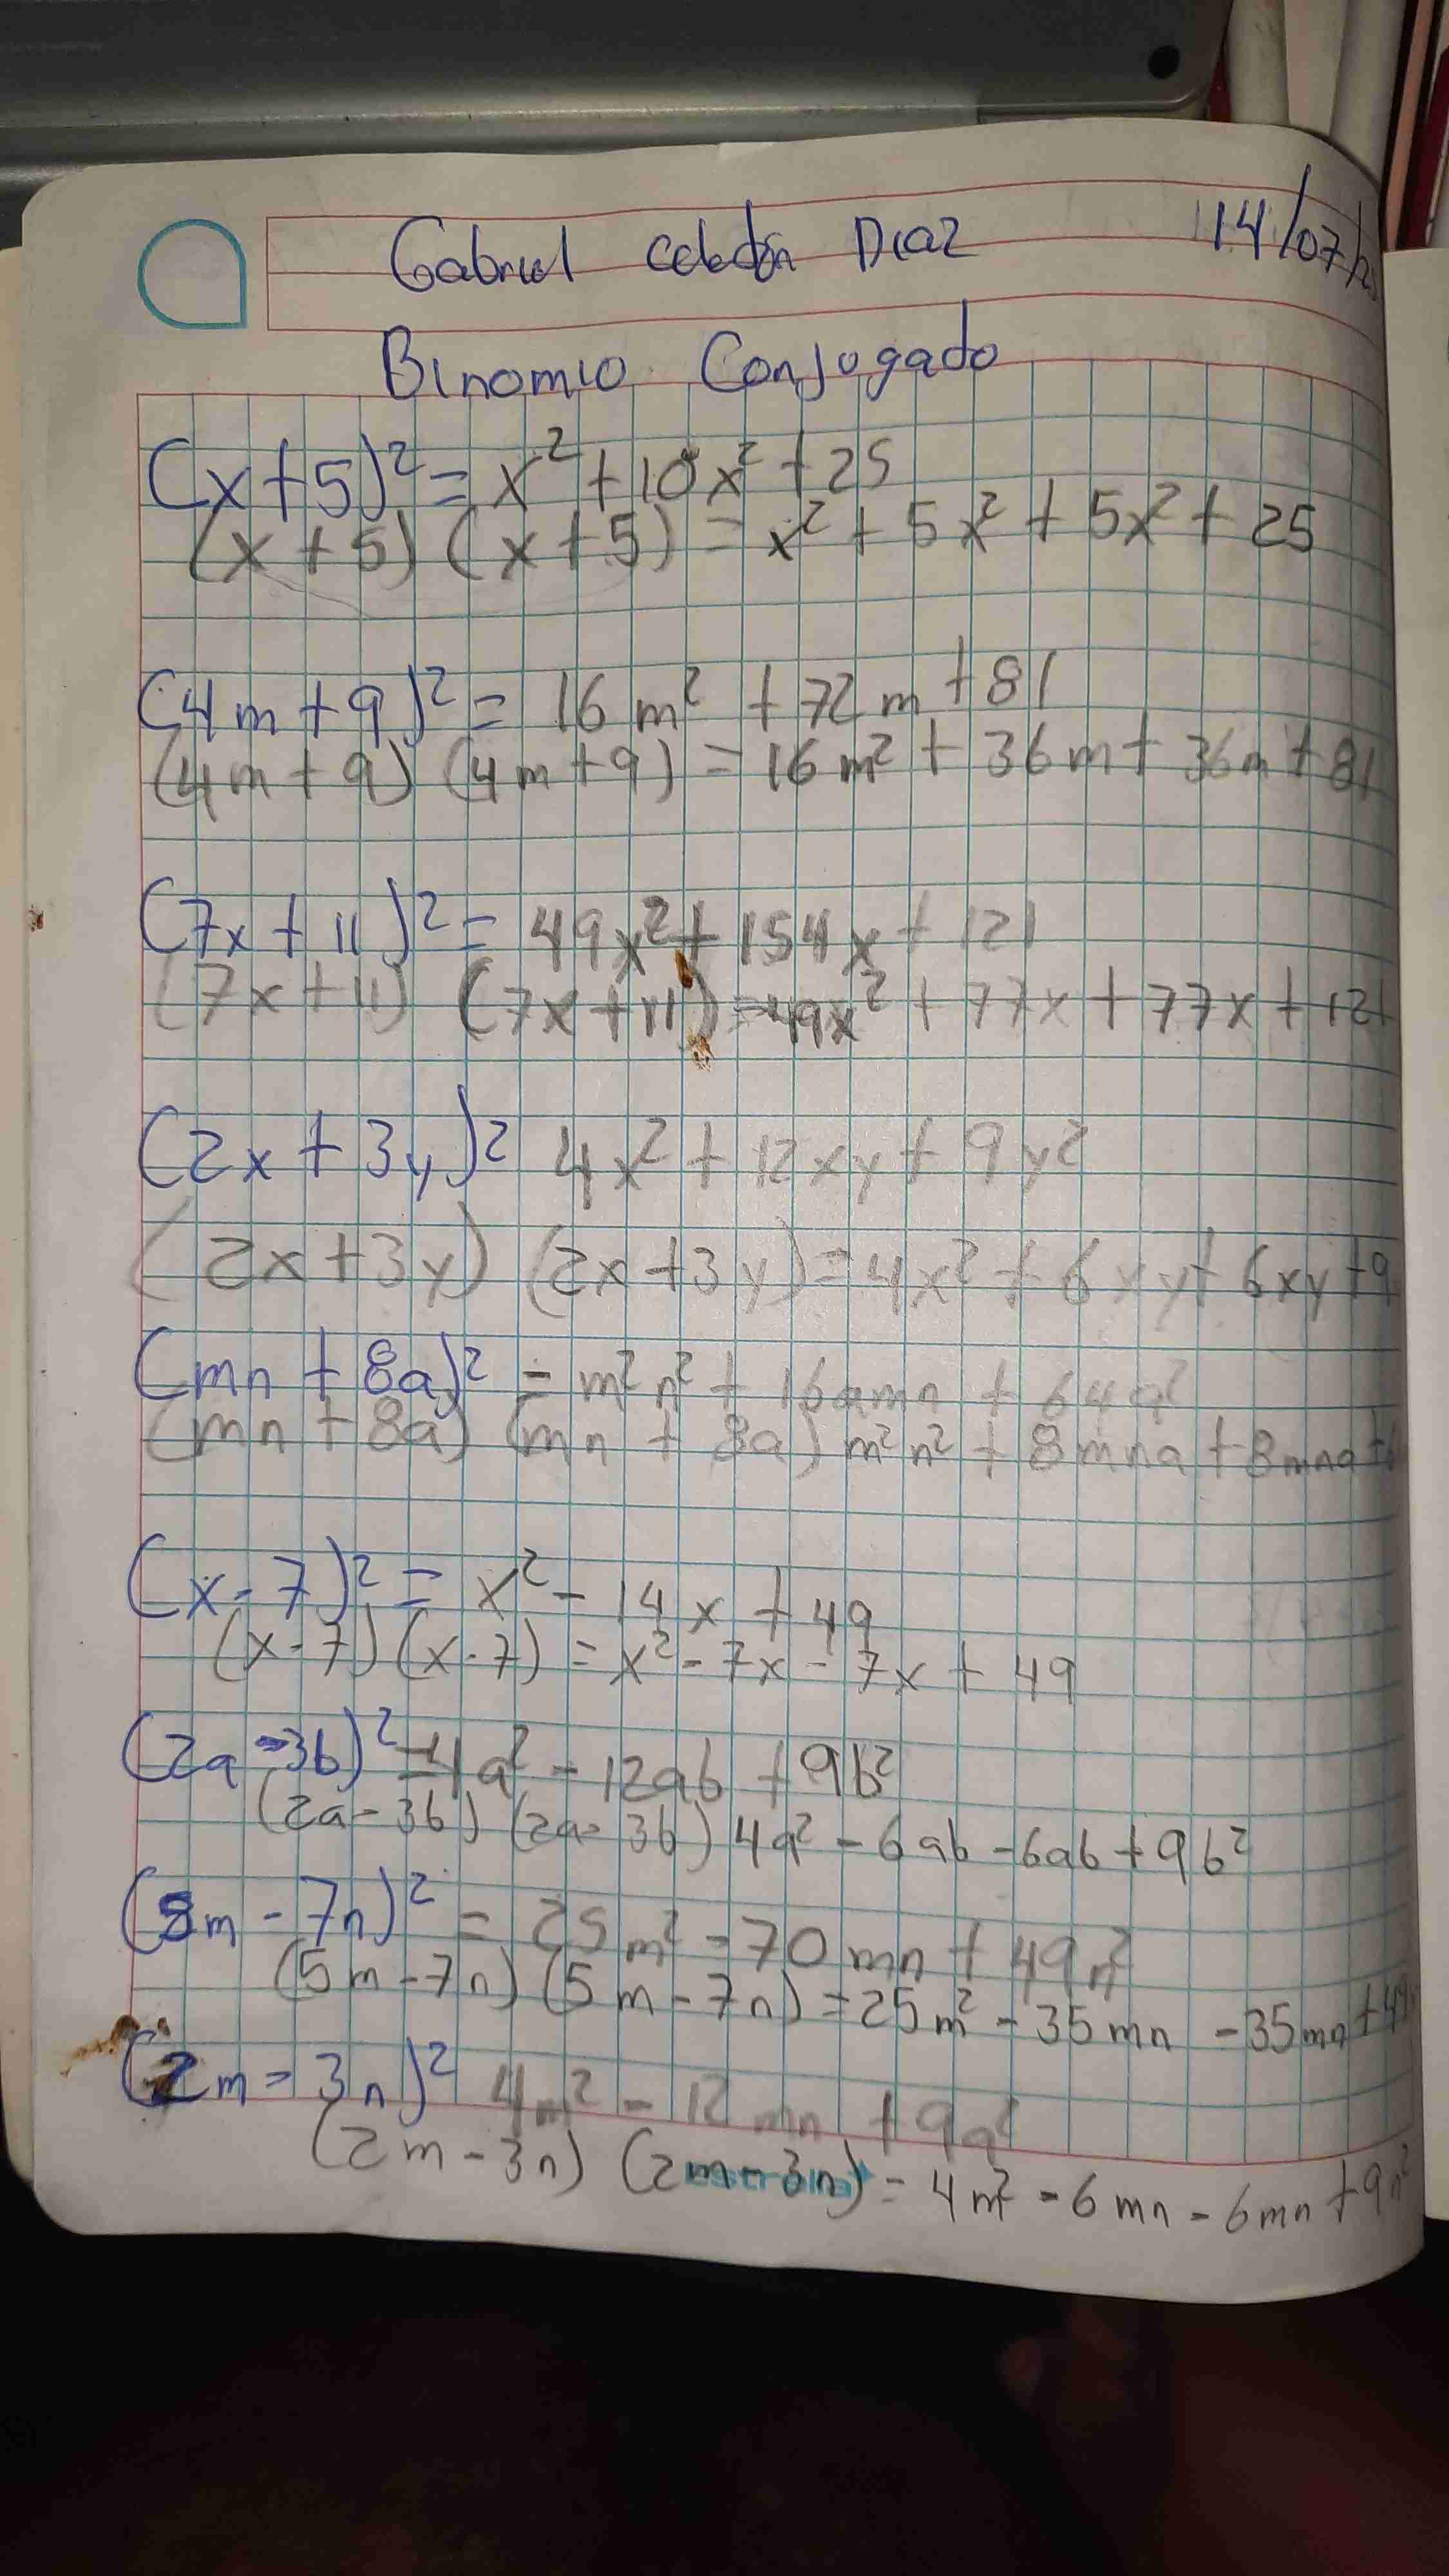 Gabriel Celedón Diaz 14/07/
Binomio Conjugado
(x+5)² = x² + 10x² + 25
(x+5) (x+5) = x² + 5x² + 5x² + 25
(4m+9)² = 16m² + 72m + 81
(4m+9) (4m+9) = 16m² + 36m + 36m + 81
(7x+11)² = 49x² + 154x + 121
(7x+11) (7x+11) = 49x² + 77x + 77x + 121
(2x+3y)² 4x² + 12xy + 9y²
(2x+3y) (2x+3y) = 4x² + 6xy + 6xy + 9
(mn + 8a)² = m²n² + 16amn + 64a²
(mn + 8a) (mn + 8a) m²n² + 8mna + 8mna +
(x-7)² = x² - 14x + 49
(x-7) (x-7) = x² - 7x - 7x + 49
(2a-3b)² = 4a² - 12ab + 9b²
(2a-3b) (2a-3b) 4a² - 6ab - 6ab + 9b²
(5m - 7n)² = 25m² - 70mn + 49n²
(5m-7n) (5m-7n) = 25m² - 35mn - 35mn + 49
(2m - 3n)² 4m² - 12mn +
(2m-3n) (2m-3n) = 4m² - 6mn - 6mn + 9n²